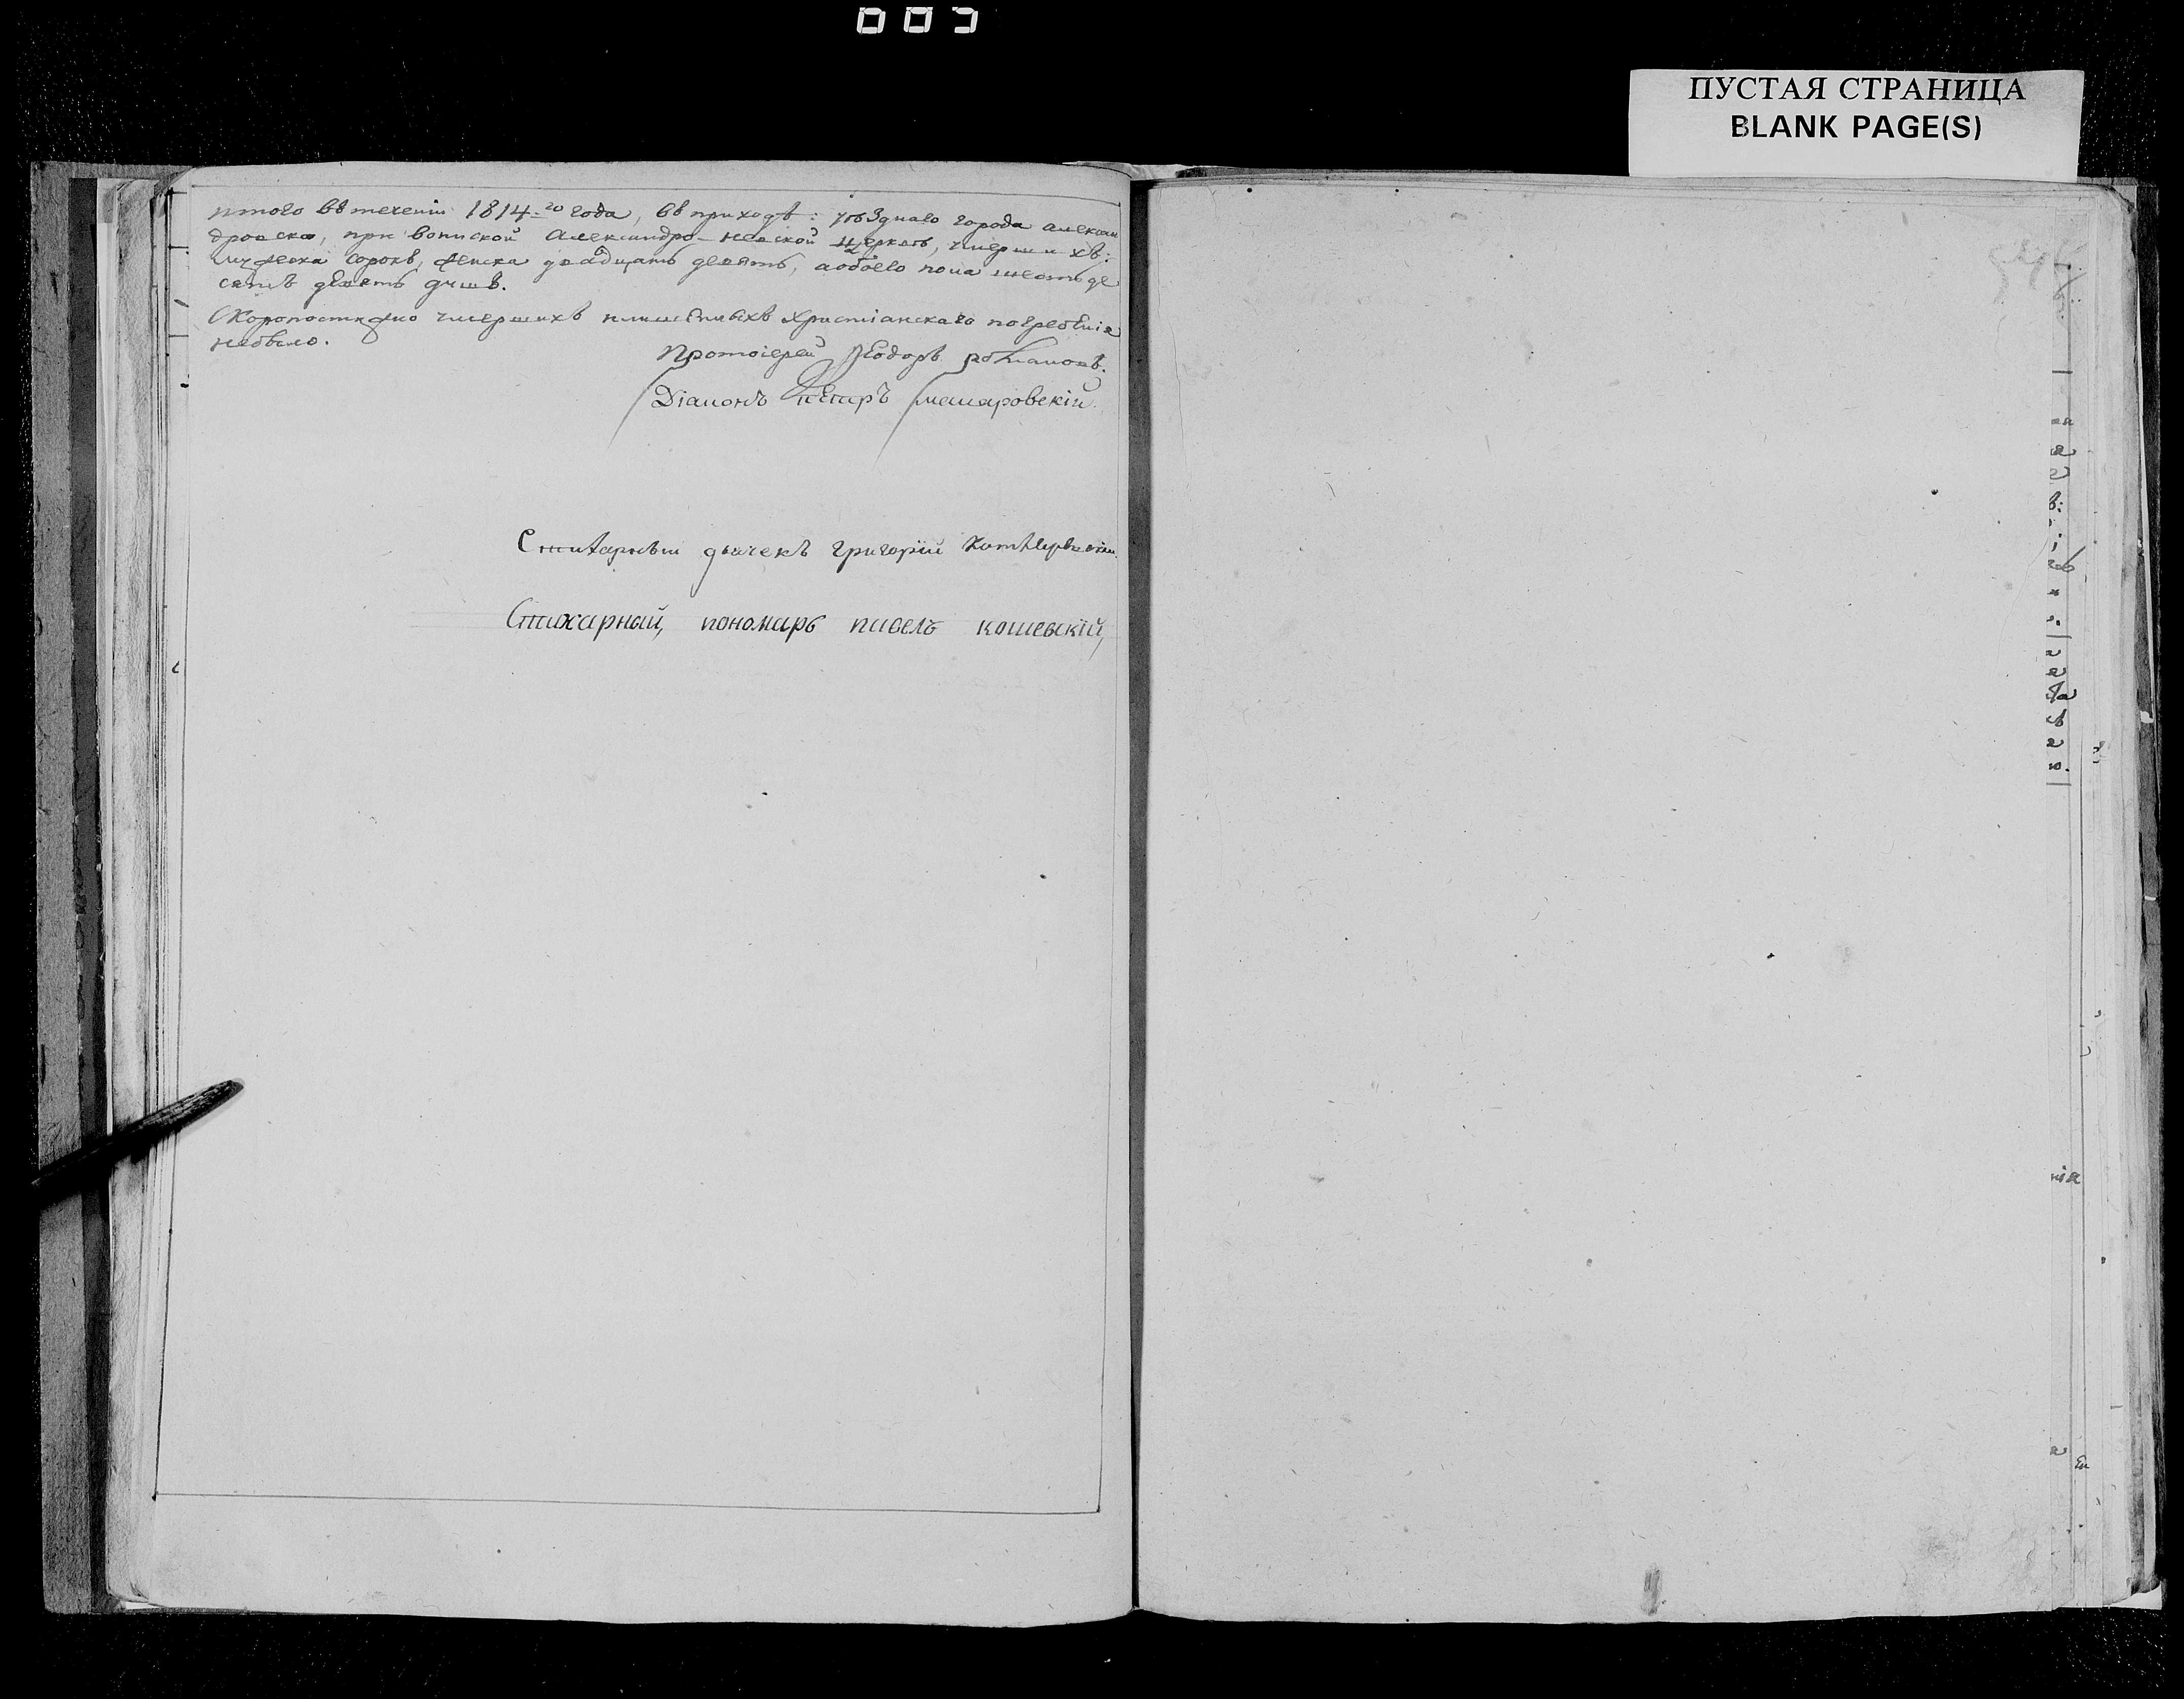 ПУСТАЯ СТРАНИЦА
BLANK PAGE(S)
итого въ теченіи 1814-го года, въ приходѣ: уѣзднаго города алексан
дровска, при воинской Александро-невской церквѣ, умершихъ:
мужеска сорокъ, женска двадцать девять, аобоего пола шестьде
сятъ девять душъ.
Скоропостижно умершихъ илишенныхъ христіанскаго погребенія
небыло.
Протоіерей Ѳеодоръ
Діаконъ петръ
Стихарный дьячекъ григорій
Стихарный, пономарь павелъ кошевскій,